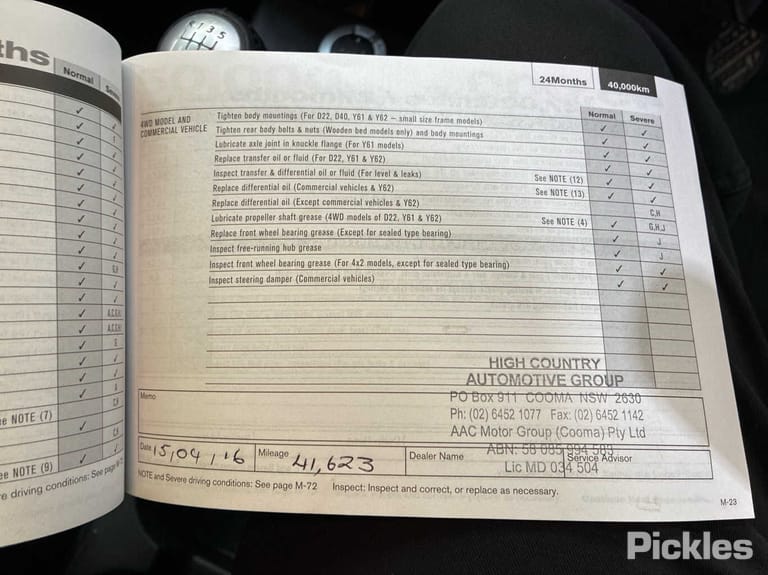 R 1 3 5
ths
Normal
24Months
40,000km
4WD MODEL AND
COMMERCIAL VEHICLE
Normal Severe
Tighten body mountings (For D22, D40, Y61 & Y62 – small size frame models) ✓ ✓
Tighten rear body bolts & nuts (Wooden bed models only) and body mountings ✓ ✓
Lubricate axle joint in knuckle flange (For Y61 models) ✓ ✓
Replace transfer oil or fluid (For D22, Y61 & Y62)
Inspect transfer & differential oil or fluid (For level & leaks) See NOTE (12)
Replace differential oil (Commercial vehicles & Y62) See NOTE (13)
Replace differential oil (Except commercial vehicles & Y62) C,H
Lubricate propeller shaft grease (4WD models of D22, Y61 & Y62) See NOTE (4) ✓ G,H,J
Replace front wheel bearing grease (Except for sealed type bearing) J
Inspect free-running hub grease J
Inspect front wheel bearing grease (For 4x2 models, except for sealed type bearing) ✓ ✓
Inspect steering damper (Commercial vehicles) ✓ ✓
HIGH COUNTRY
AUTOMOTIVE GROUP
Memo
PO Box 911 COOMA NSW 2630
Ph: (02) 6452 1077 Fax: (02) 6452 1142
AAC Motor Group (Cooma) Pty Ltd
ABN: 58 085 994 583
Date 15,04,16
Mileage 41,623
Dealer Name
Service Advisor
Lic MD 034 504
NOTE and Severe driving conditions: See page M-72 Inspect: Inspect and correct, or replace as necessary.
M-23
A,C,G,H
e NOTE (7)
ee NOTE (9)
e driving conditions: See page
Pickles